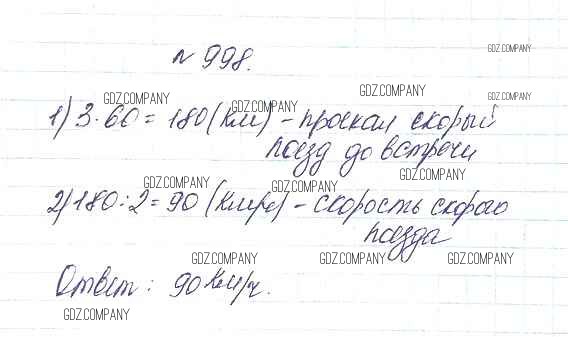 № 998.
GDZ.COMPANY
GDZ.COMPANY
GDZ.COMPANY
GDZ.COMPANY
GDZ.COMPANY
1) 3·60=180 (км) - проехал скорый
поезд до встречи
GDZ.COMPANY
GDZ.COMPANY
GDZ.COMPANY
2) 180:2=90 (км/ч) - скорость скорого
поезда
GDZ.COMPANY
GDZ.COMPANY
GDZ.COMPANY
Ответ: 90 км/ч.
GDZ.COMPANY